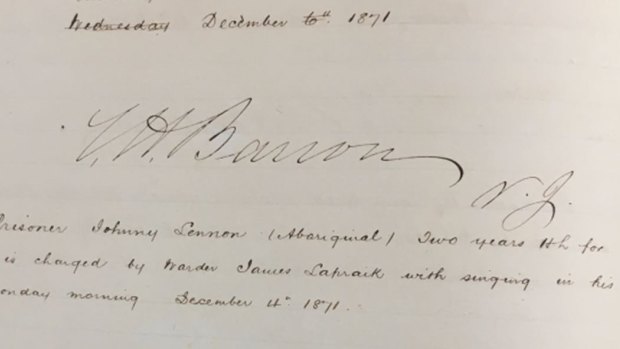 Wednesday December 6th. 1871
Barron
V. J.
Prisoner Johnny Lennon (Aboriginal) Two years Hh for
is charged by Warder James Lapraik with singing in his
onday morning December 4th 1871.